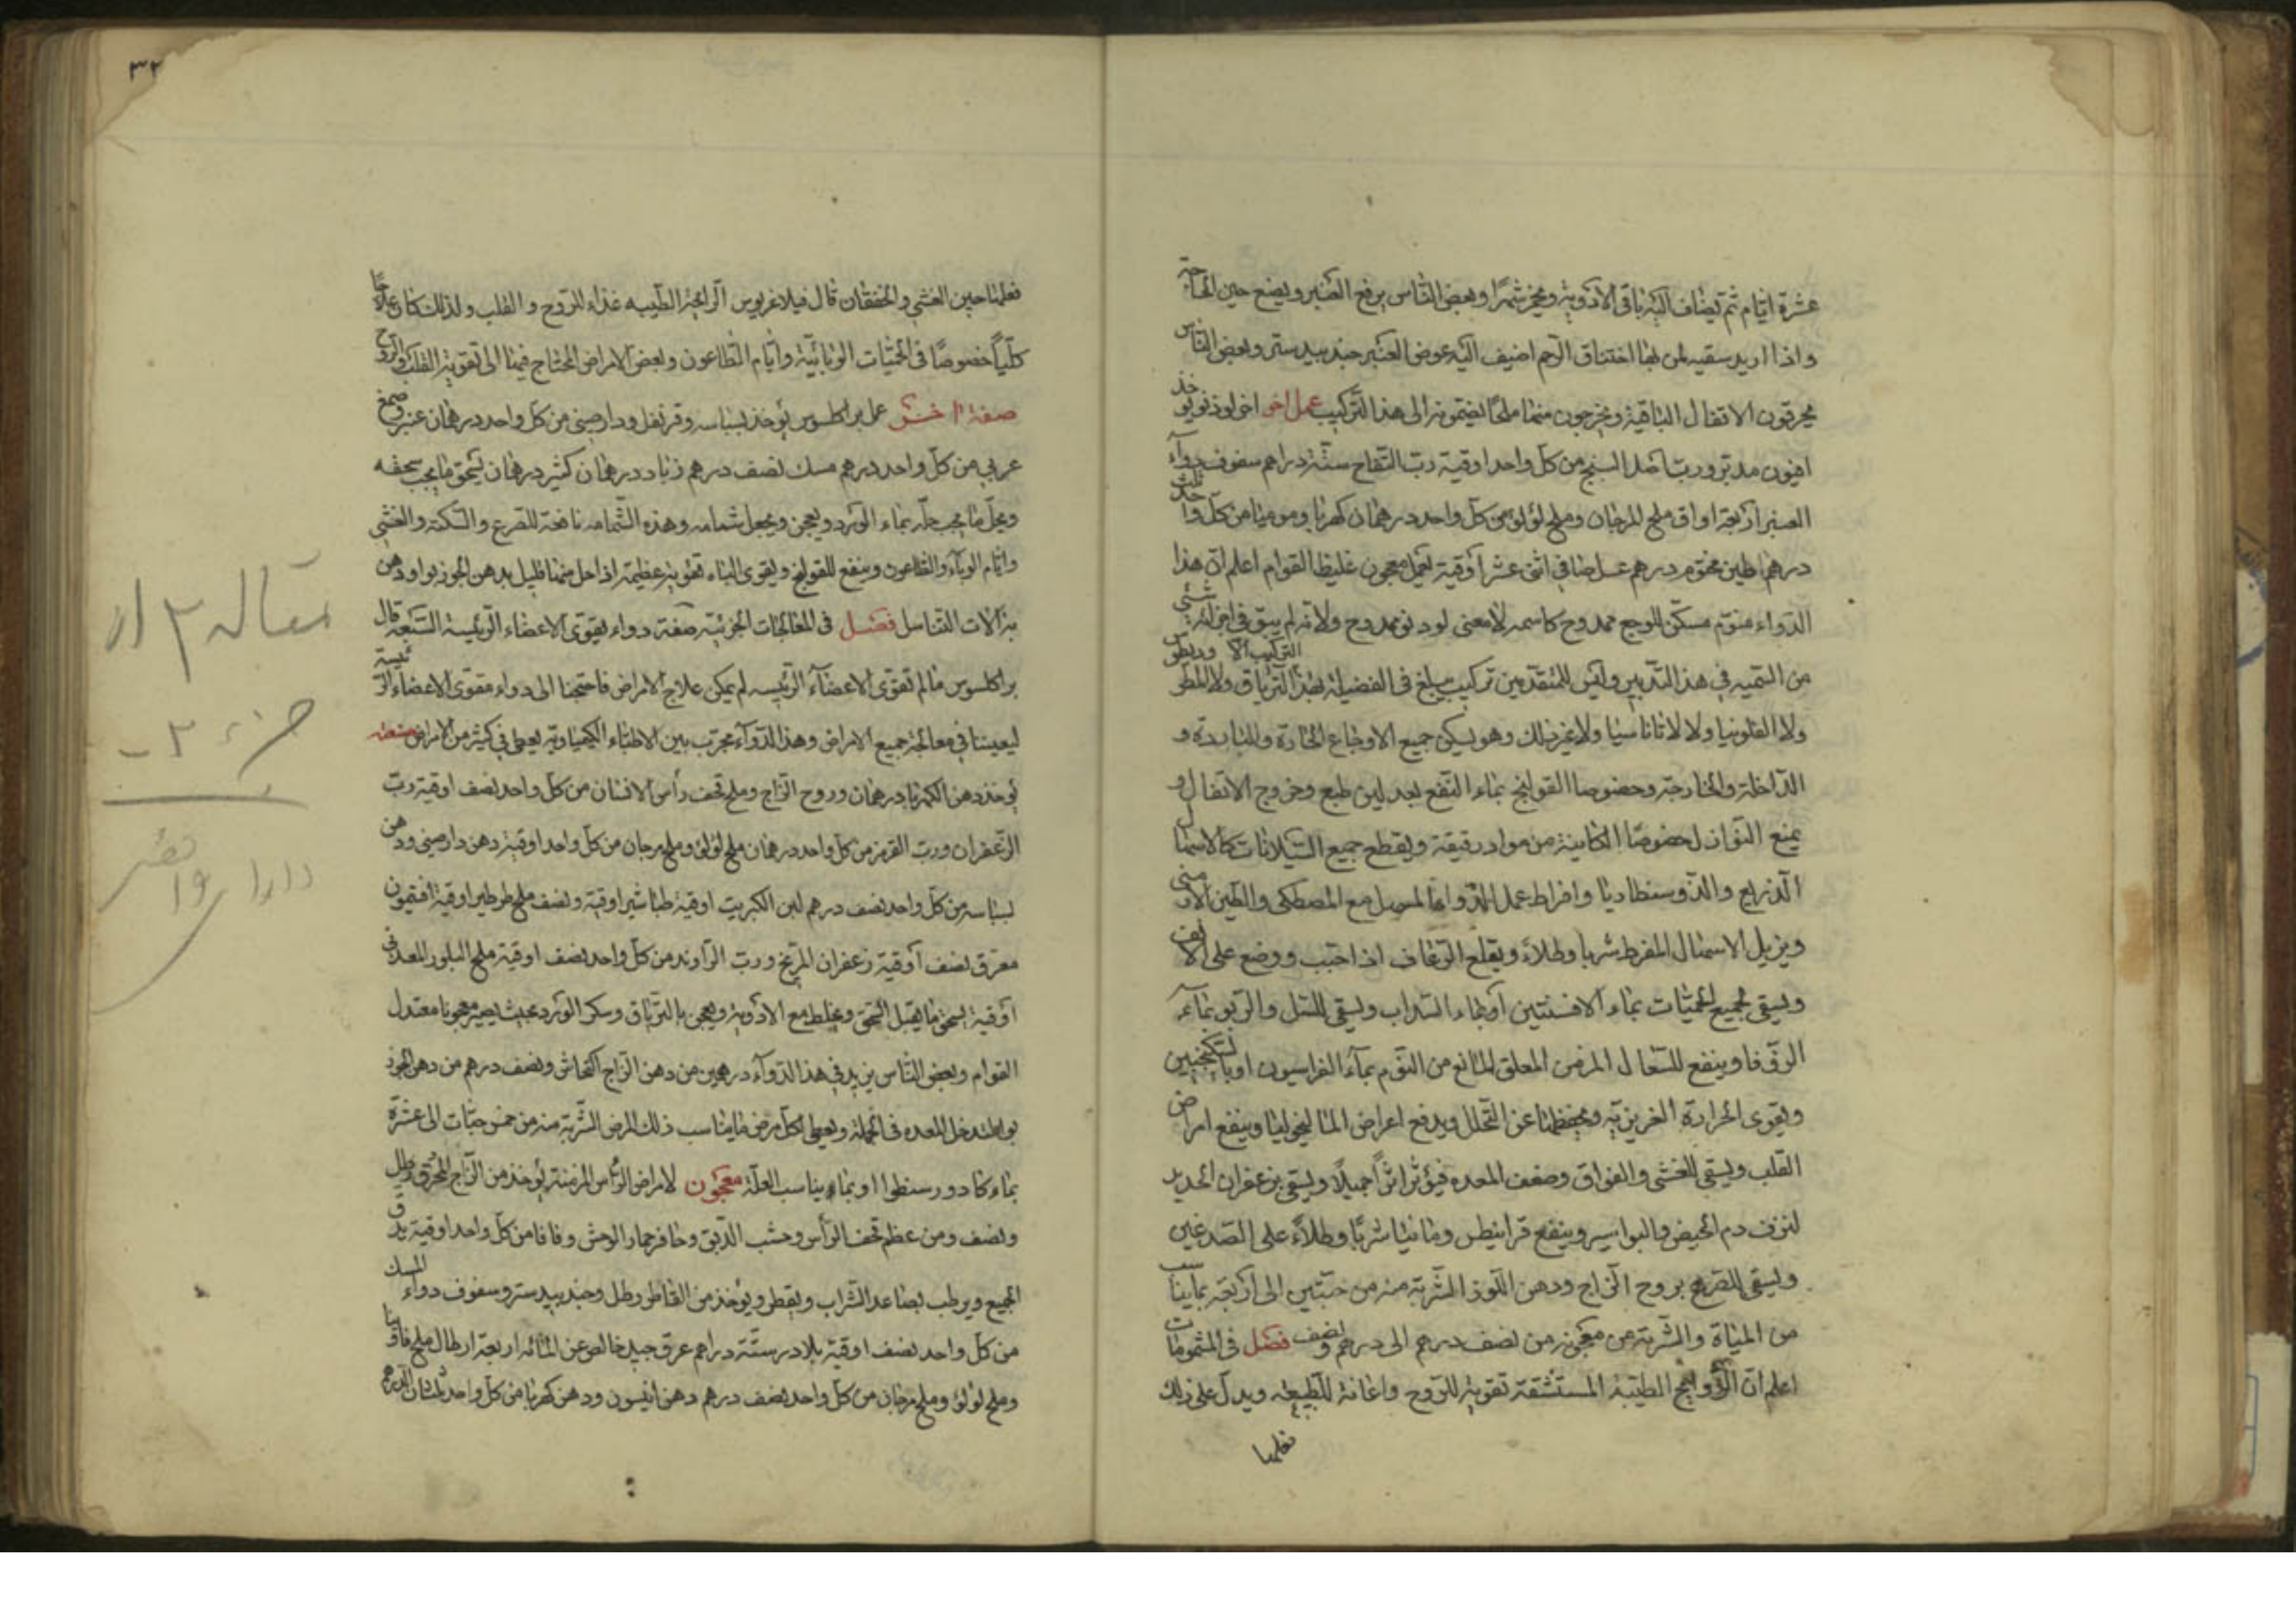 عشرة ايام ثم يضاف اليه باقى الادوية ويخمر شهرًا وبعض الناس يرفع العنبر ويضع حين الحاجة
واذا اريد سقيه لمن بها اختناق الرحم اضيف اليه عوض العنبر جندبيدستر وبعض الناس
يحرقون الاثقال الباقية ويخرجون منها ملحًا يضمونه الى هذا التركيب عمل اخر اخر لوذنو يؤخذ
افيون مدبر ورب اصل البنج من كل واحد اوقية رب التفاح ستة دراهم سفوف دواء
العنبر اربعة اواق ملح المرجان وملح لؤلؤ من كل واحد ثلث درهمان كهربا وموميا من كل واحد
درهم طين مختوم درهم عسل صافى اثنى عشر اوقية يعمل معجون غليظ القوام اعلم ان هذا
الدواء منوم مسكن للوجع ممدوح كاسمه لان معنى لودنو ممدوح ولانه لم يبق فى اجزائه شئ
من السمية فى هذا التدبير وليس للمتقدمين تركيب يبلغ فى الفضيلة بهذا التركيب الا الترياق ولا المطروديطوس
ولا الفلونيا ولا لاثاناسيا ولا غير ذلك وهو يسكن جميع الاوجاع الحارة والباردة و
الداخلة والخارجة وخصوصا القولنج بماء النعنع بعد لين طبع وخروج الاثفال و
يمنع النوازل خصوصًا الكاينة من مواد رقيقة ويقطع جميع السيلانات كالاسهال
الذريع والدوسنطاريا وافراط عمل الدواء المسهل مع المصطكى والطين الارمنى
ويزيل الاسهال المفرط شربا وطلاء ويقطع الرعاف اذا حبب ووضع على الانف
ويسقى لجميع الحميات بماء الافسنتين او بماء الشراب ويسقى للسل والربو بماء
الزوفا وينفع للسعال المزمن المعلق المانع من النوم بماء الفراسيون او بالسكنجبين
ويقوى الحرارة الغريزية ويحفظها عن التحلل ويدفع اعراض الماليخوليا وينفع امراض
القلب ويسقى للغشى والفواق وضعف المعده فيؤثر اثراً جميلاً ويسقى بزعفران الحديد
لنزف دم الحيض والبواسير وينفع قرانيطس ومانيا شربًا وطلاءً على الصدغين
ويسقى للصرع بروح الزاج ودهن اللوز الشربة منه من حبتين الى اربعة بما يناسب
من المياة والشربة من معجونه من نصف درهم الى درهم ونصف فصل فى المشمومات
اعلم ان الروايح الطيبة المستنشقة تقوية للروح واعانة للطبيعه ويدل على ذلك
فعلها
٣٢
فعلها حين الغشى والخفقان قال فيلاغريوس الرايحة الطيبه غذاء للروح والقلب ولذلك كان علاجًا
كليًا خصوصًا فى الحميات الوبائية وايام الطاعون وبعض الامراض المحتاج فيها الى تقوية القلب والروح
صفة اخرى عمل براكلسوس يؤخذ بسباسه وقرنفل ودارصينى من كل واحد درهمان عنبر وصمغ
عربى من كل واحد درهم مسك نصف درهم زباد درهمان كثير درهمان يسحق ما يجب سحقه
ويحل ما يجب حله بماء الورد ويعجن ويجعل شمامه وهذه الشمامه نافعة للصرع والسكتة والغشى
وايام الوباء والطاعون وينفع للقولنج ويقوى الباه تقوية عظيمة اذا حل منها قليل بدهن الجوز بوا ودهن
به الات التناسل فصل فى المعالجات الجزئية صفة دواء يقوى الاعضاء الرئيسة السبعة قال
براكلسوس ما لم تقوى الاعضاء الرئيسه لم يمكن علاج الامراض فاحتجنا الى دواء مقوى الاعضاء الرئيسة
ليعيننا فى معالجة جميع الامراض وهذا الدواء مجرب بين الاطباء الكيمياوية يعطى فى كثير من الامراض صفته
يؤخذ دهن الكهربا درهمان وروح الزاج وملح قحف رأس الانسان من كل واحد نصف اوقية رب
الزعفران ورب القرمز من كل واحد درهمان ملح لؤلؤ وملح مرجان من كل واحد اوقية دهن دارصينى ودهن
بسباسه من كل واحد نصف درهم لبن الكبريت اوقية طباشير اوقية ونصف ملح طرطير اوقية افتيمون
معرق نصف اوقية زعفران المريخ ورب الراوند من كل واحد نصف اوقية ملح البلور المعدنى
اوقية يسحق ما يقبل السحق ويخلط مع الادوية ويعجن بالترياق وسكر الورد بحيث يصير معجونا معتدل
القوام وبعض الناس يزيد فى هذا الدواء درهمين من دهن الزاج النحاس ونصف درهم من دهن الجوز
بوا لتدخل المعده فى الجملة ويعطى لكل مرض ما يناسب ذلك المرض الشربة منه من خمس حبات الى عشرة
بماء كادورسنطوا او بماء يناسب العلة معجون لامراض الرأس المزمنة يؤخذ من الزاج المحرق رطل
ونصف ومن عظم قحف الرأس وخشب الدبق وحافر حمار الوحش وفافا من كل واحد اوقية يدق
الجميع ويرطب بصاعد الشراب ويقطر ويؤخذ من القاطر رطل وجندبيدستر وسفوف دواء المسك
من كل واحد نصف اوقية بلادر ستة دراهم عرق جيد خالص عن المائه اربعة ارطال ملح فاوانيا
وملح لؤلؤ وملح مرجان من كل واحد نصف درهم دهن انيسون ودهن كهربا من كل واحد ثلثان الدرهم
مقاله ٣ از
جزء ٢
دارا